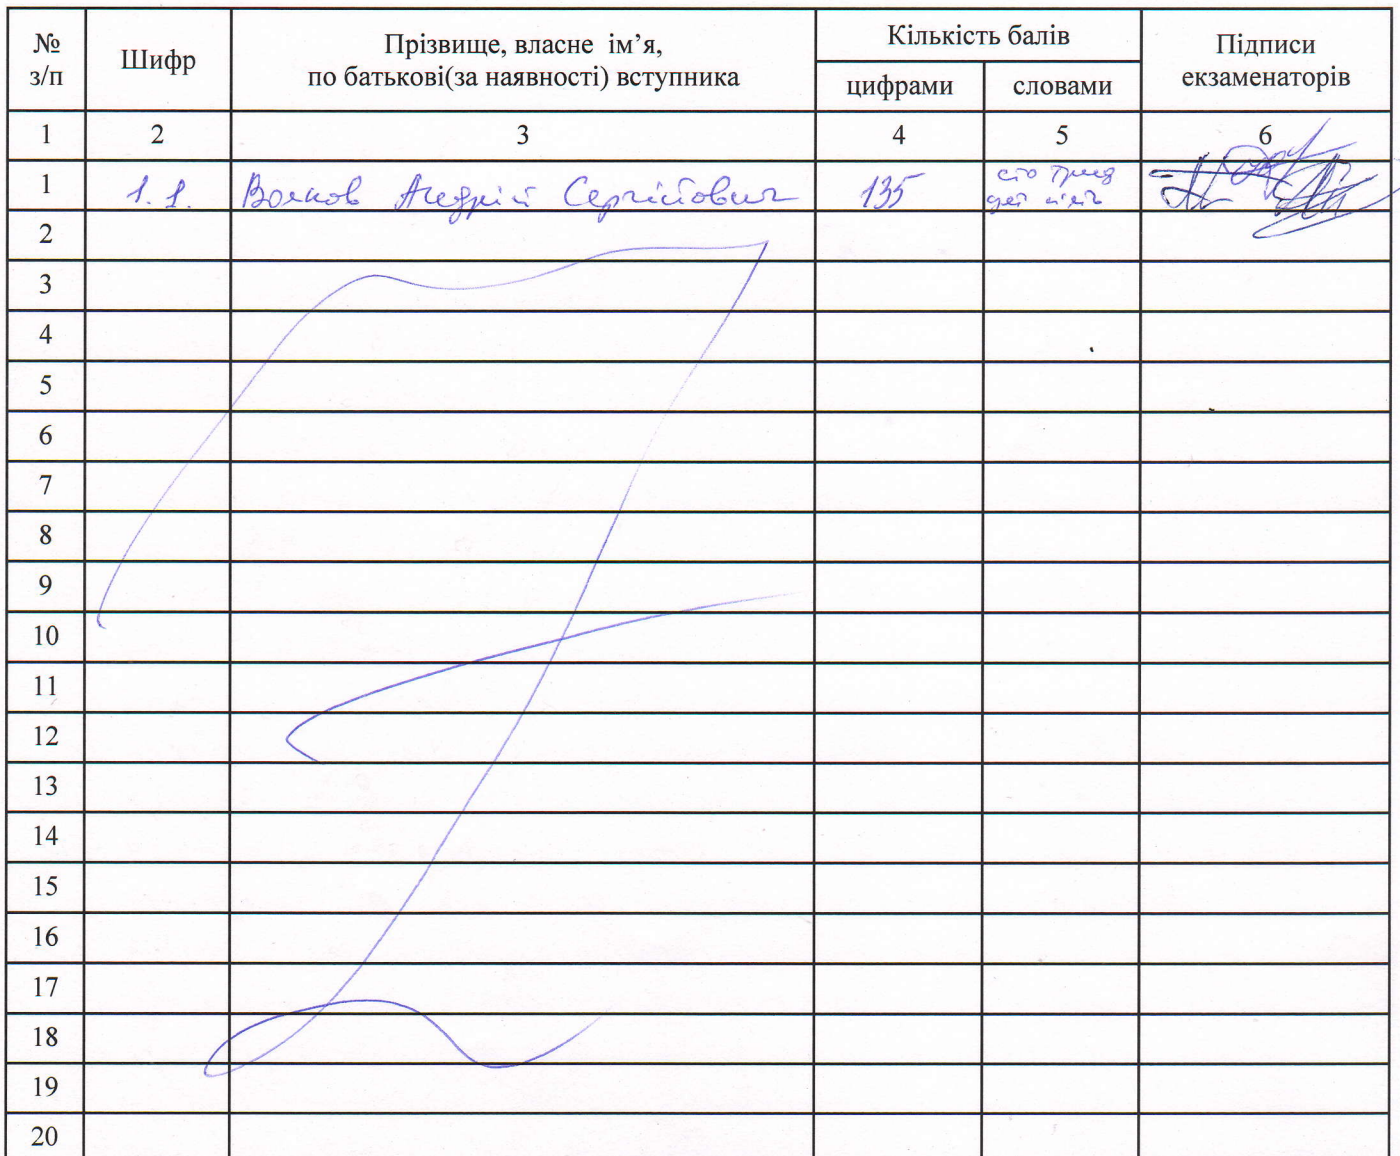 № з/п Шифр Прізвище, власне ім’я, по батькові(за наявності) вступника Кількість балів Підписи екзаменаторів
цифрами словами
1 2 3 4 5 6
1 1.1. Волков Андрій Сергійович 135 сто тридцять п'ять
2
3
4
5
6
7
8
9
10
11
12
13
14
15
16
17
18
19
20